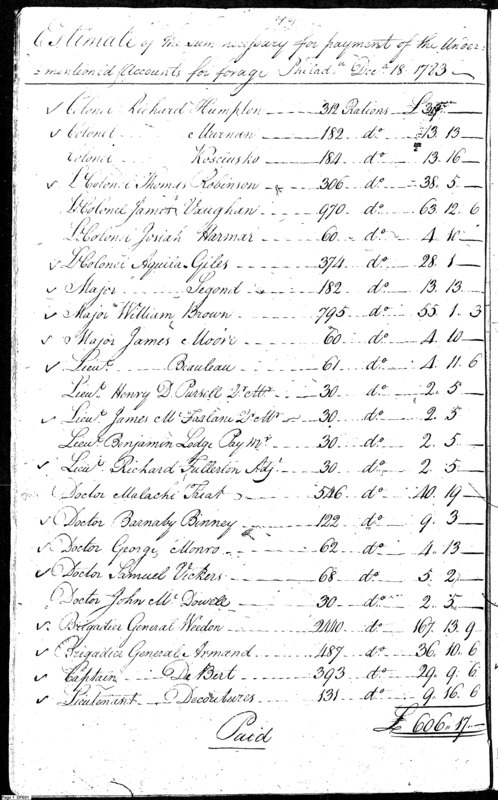 Estimate of the sum necessary for payment of the Under-
=mentioned Accounts for forage Philad.ª Dec.r 18. 1783
✓ Colonel Richard Humpton 312 Rations £39
✓ Colonel Murnan 182 d.o 13 13
Colonel Kosciusko 184 d.o 13. 16
✓ L.t Colonel Thomas Robinson 306 d.o 38. 5
L.t Colonel James Vaughan 970 d.o 63. 12. 6
L.t Colonel Josiah Harmar 60 d.o 4. 10
✓ L.t Colonel Aquila Giles 374 d.o 28. 1
✓ Major Segond 182 d.o 13. 13
✓ Major William Brown 795 d.o 55. 1. 3
✓ Major James Moore 60 d.o 4. 10
✓ Lieu.t Beauleau 61 d.o 4. 11. 6
Lieu.t Henry D. Pursell Q.r M.r 30 d.o 2. 5
✓ Lieu.t James Mc Farlane Q.r M.r 30 d.o 2. 5
Lieu.t Benjamin Lodge Pay M.r 30 d.o 2. 5
✓ Lieu.t Richard Fullerton Adj.t 30 d.o 2. 5
Doctor Malachi Treat 546 d.o 40. 19
✓ Doctor Barnaby Binney 122 d.o 9. 3
✓ Doctor George Monro 62 d.o 4. 13
✓ Doctor Samuel Vickers 68 d.o 5. 2
Doctor John Mc Dowell 30 d.o 2. 5
✓ Brigadier General Weedon 2440 d.o 167. 13. 9
✓ Brigadier General Armand 487 d.o 36. 10. 6
✓ Captain De Bert 393 d.o 29. 9. 6
✓ Lieutenant Decoutures 131 d.o 9. 16. 6
£606. 17.
Paid